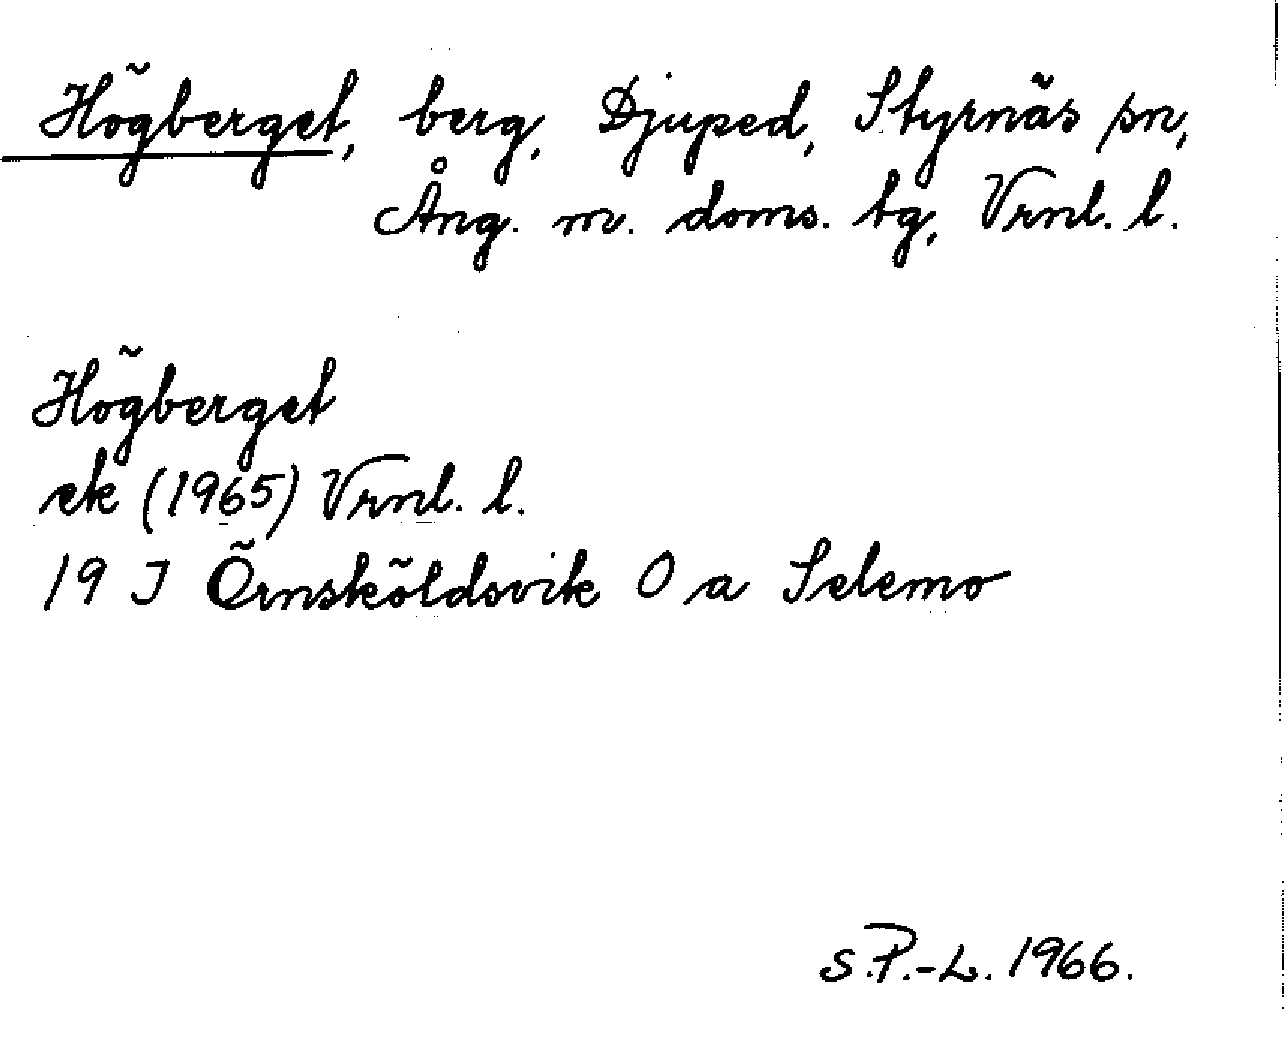 Högberget, berg, Djuped, Styrnäs sn,
Ång. m. doms. tg, Vrnl. l.
Högberget
ek (1965) Vrnl. l.
19 J Örnsköldsvik 0 a Selemo
S.P.-L. 1966.